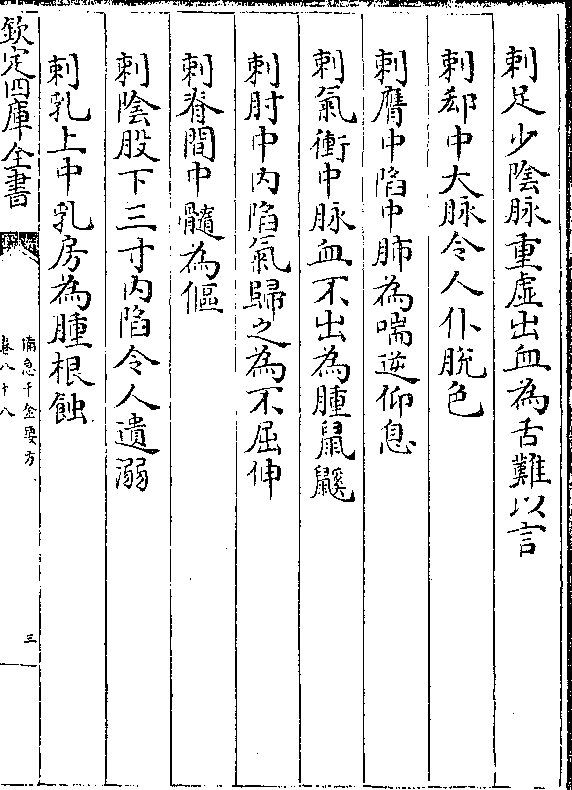 刺足少陰脉重虛出血為舌難以言
刺郄中大脉令人仆脫色
刺膺中陷中肺為喘逆仰息
刺氣衝中脉血不出為腫鼠鼷
刺肘中内陷氣歸之為不屈伸
刺脊間中髓為傴
刺陰股下三寸内陷令人遺溺
刺乳上中乳房為腫根蝕
欽定四庫全書
備急千金要方
卷八十八
三